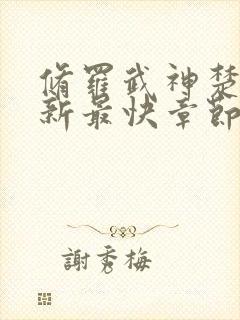 脩羅武神楚
新最快章節
謝秀梅